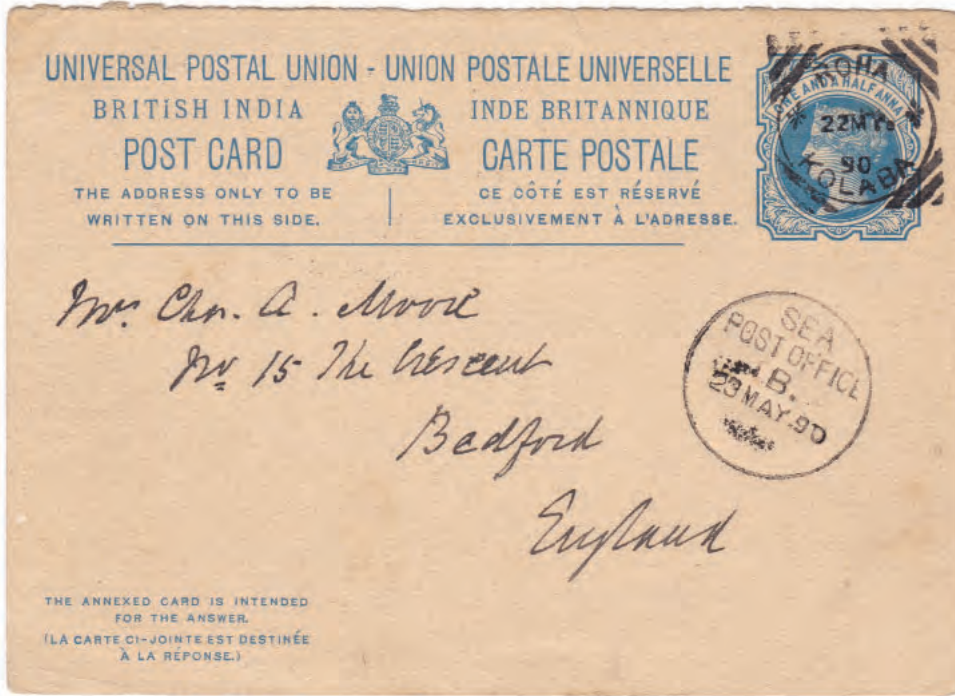 UNIVERSAL POSTAL UNION - UNION POSTALE UNIVERSELLE
BRITISH INDIA INDE BRITANNIQUE
POST CARD CARTE POSTALE
THE ADDRESS ONLY TO BE
WRITTEN ON THIS SIDE.
CE CÔTÉ EST RÉSERVÉ
EXCLUSIVEMENT À L'ADRESSE.
ONE AND A HALF ANNA
22 M
90
KOLABA
Chas. A. Moore
No 15 The Crescent
Bedford
England
SEA
POST OFFICE
B.
23 MAY 90
THE ANNEXED CARD IS INTENDED
FOR THE ANSWER.
(LA CARTE CI-JOINTE EST DESTINÉE
À LA RÉPONSE.)